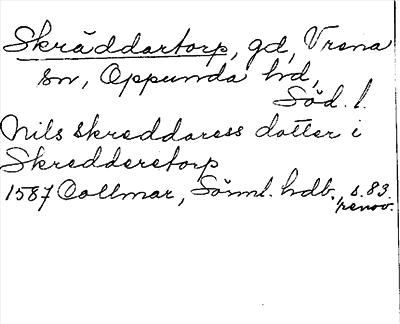 Skräddartorp, gd, Vrena
sn, Oppunda hd,
Söd. l.
Nils skreddaress dotter i
Skredderetorp
1587 Collmar, Sörml. hdb. s. 83.
penov.